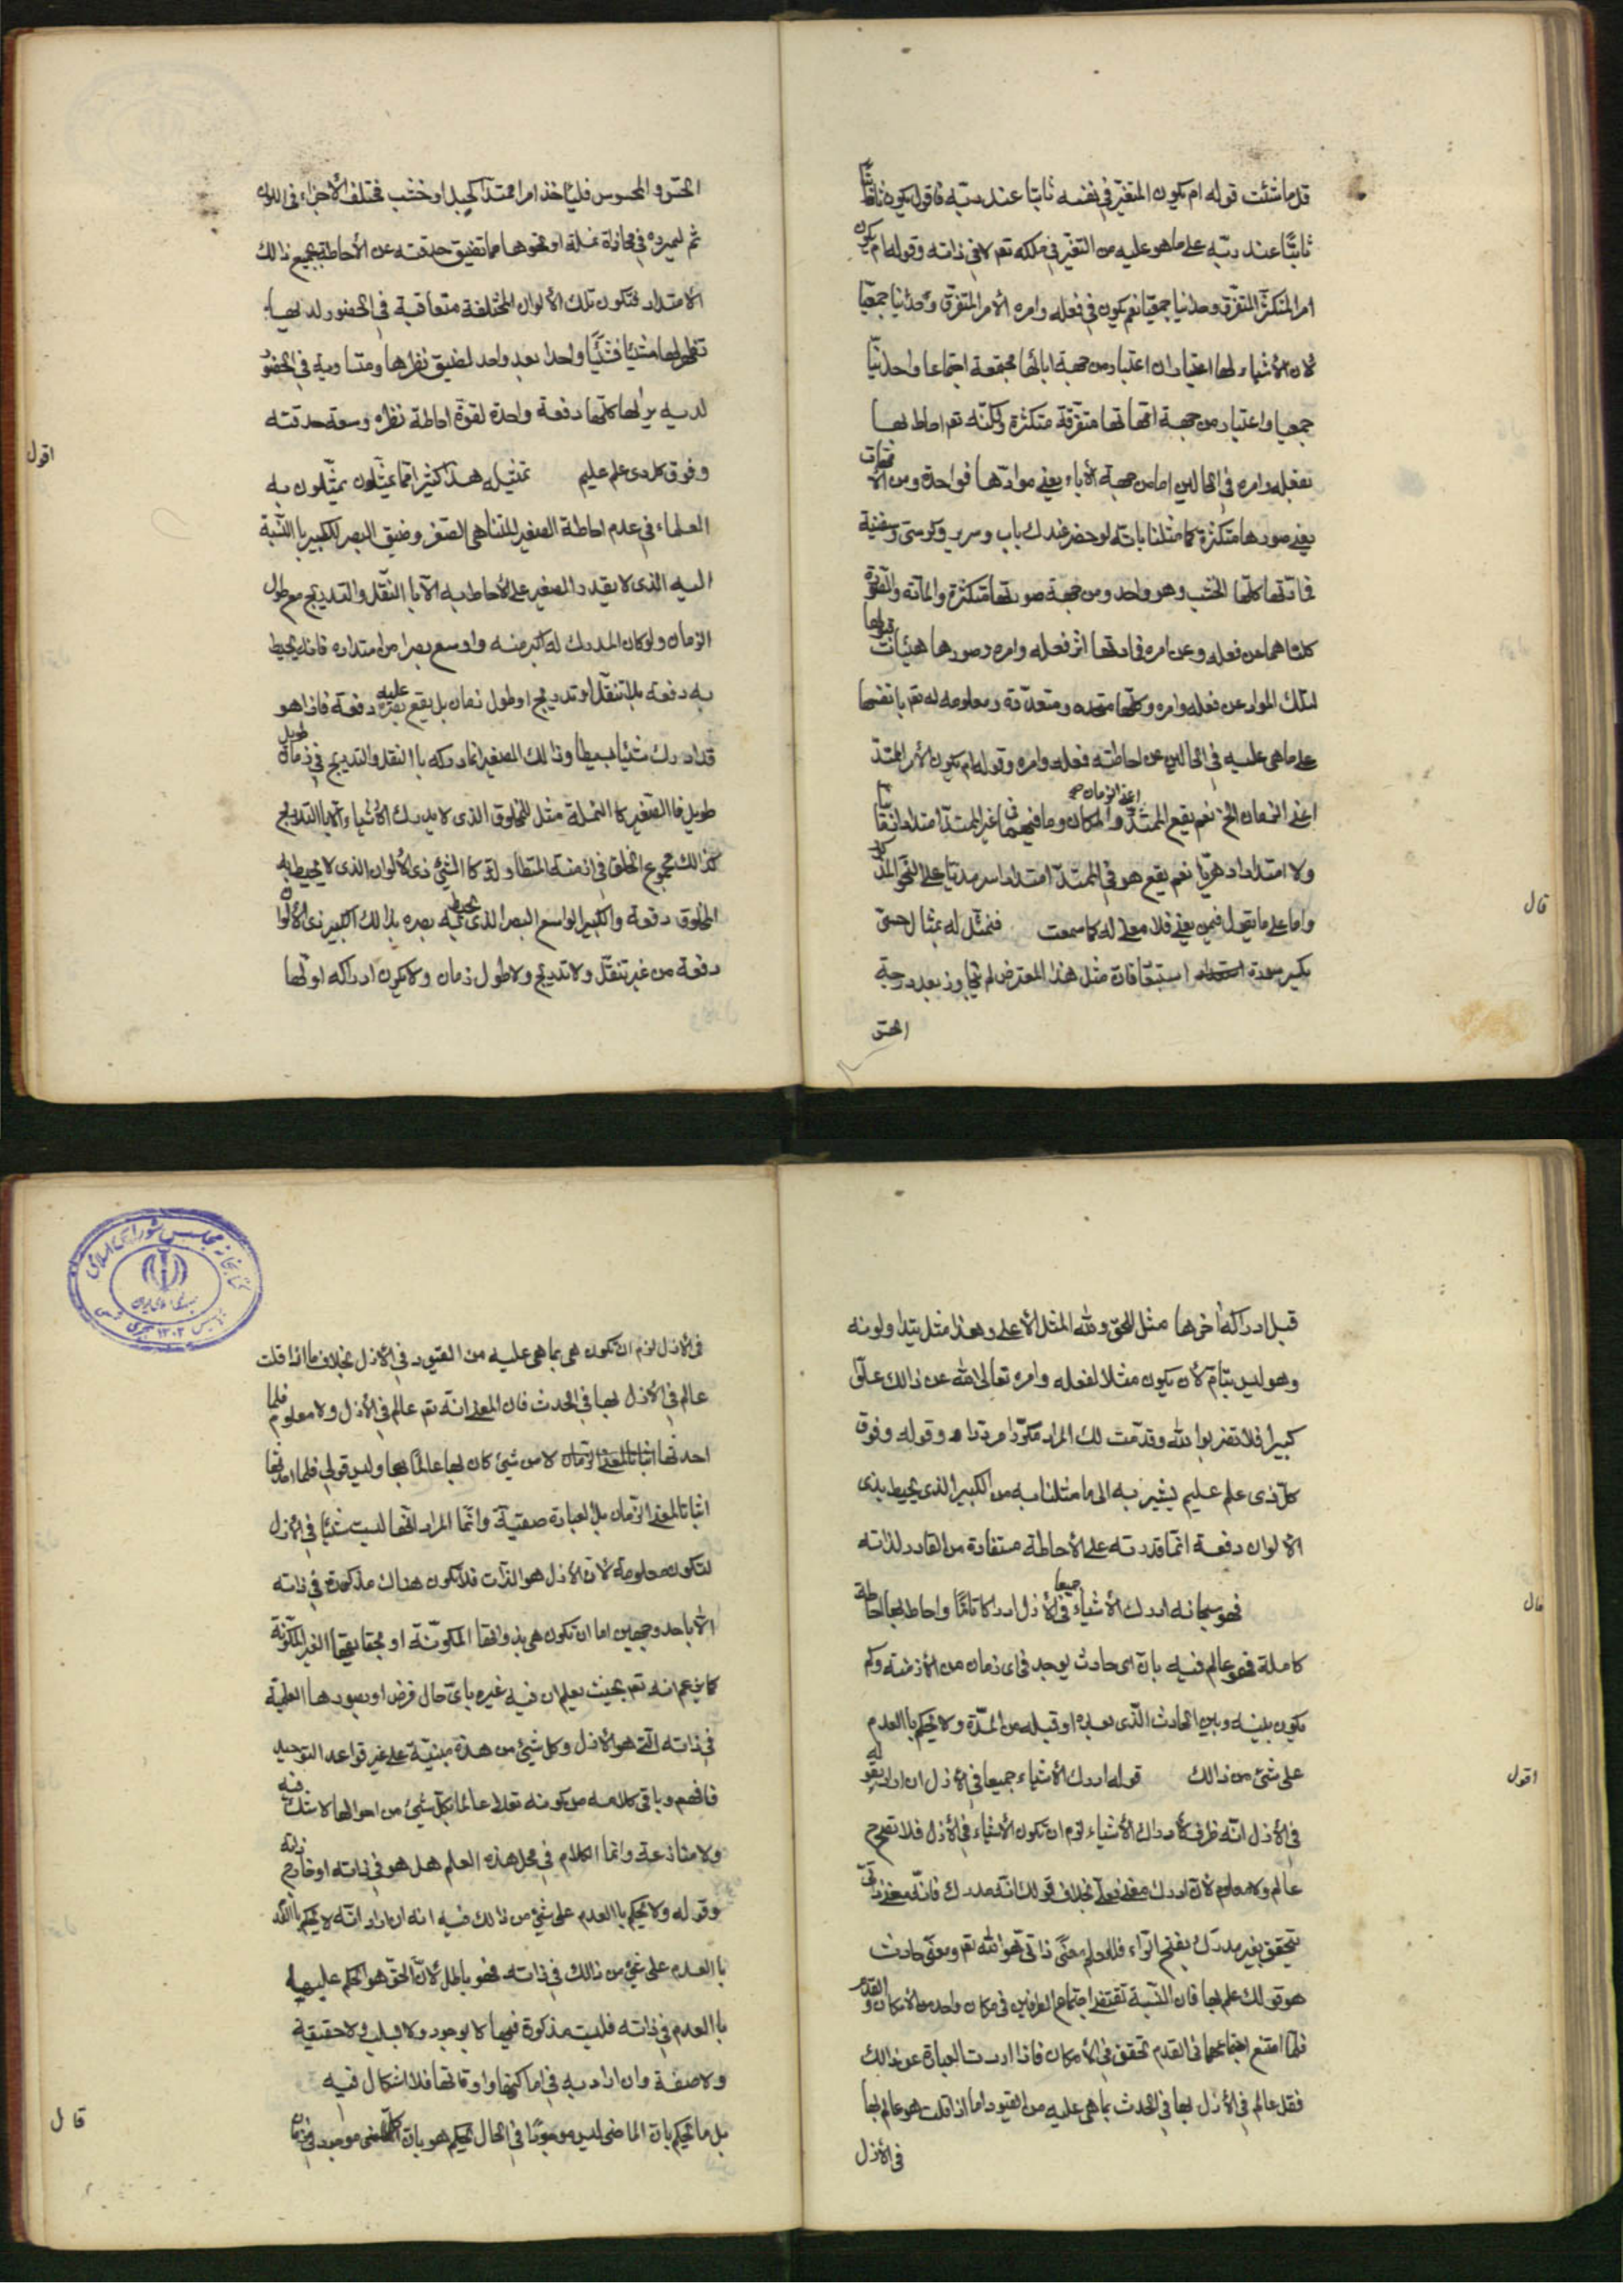 قد ما شئت قوله ام يكون المتغيّر في نفسه ثابتا عند ربّه فاقول يكون
ثابتًا عند ربّه على ما هو عليه من التغيّر في ملكه تعم لا في ذاته وقوله ام يكون
امر المتكثّر المتفرّق وحدانيا جمعيّا نعم يكون في فعله وامره الأمر المتفرّق وحدانيا جمعيّا
لان الأشياء لها اعتباران اعتبار من جهة ابائها مجتمعة اجتماعا واحدانيّا
جمعيا واعتبار من جهة امّهاتها متفرّقة متكثّرة ولكنّه تعم احاط بها
بفعله وامره في الحالين اما من جهة الأباء يعني موادّها فواحدة ومن الأمّهات
يعني صورها متكثّرة كما مثلنا بانّه لو حضر عندك باب وسرير وكرسيّ وسفينة
فمادّتها كلّها الخشب وهو واحد ومن جهة صورتها متكثّرة والمادّة والصّورة
كلتاهما من فعله وعن امره فمادتها اثر فعله وامره وصورها هيئات قبولها
لتلك المواد عن فعله وامره وكلّها متّحده ومتعدّدة ومعلومه له تعم بانفسها
على ما هي عليه في الحالين عن احاطته فعله وامره وقوله ام يكون الأمر الممتدّ
اعني الزمان
اعني الزمان الخ نعم يقع الممتدّ والمكان وما فيهما في غير الممتدّ امتدادا
ولا امتدادا دهريّا نعم يقع هو في الممتدّ امتدادا سرمديّا على النّحو المذكور
قال
واما على ما يقول فمن يعني فلا معنى له كما سمعت فنمثّل له بمثال حسّي
يكسر سورة استبعاده فانّ مثل هذا المعترض لم يتجاوز بعد درجة
الحسّ
الحسّ والمحسوس فليأخذ امرا ممتدّا كحبل او خشب مختلف الأجزاء في اللون
ثم ليمرره في محاذاة نملة او نحوها مما تضيق حدقته عن الأحاطة بجميع ذالك
الأمتداد فتكون تلك الألوان المختلفة متعاقبة في الحضور لديها
تظهر لها شيئًا فشيئًا واحدا بعد واحد لضيق نظرها ومتساوية في الحضور
لديه يراها كلّها دفعة واحدة لقوّة احاطة نظره وسعة حدقته
اقول
وفوق كل ذي علم عليم تمثيله هذا كثيرا ممّا يمثّلون به
العلماء في عدم احاطة الصغير المتناهي الصغر وضيق البصر للكبير باالنّسبة
اليه الذي لا يقدر الصغير على الأحاطة به الّا باالتنقّل والتدريج مع طول
الزمان ولو كان المدرك له اكبر منه واوسع بصرا من امتداده فانه يحيط
به دفعة بلا تنقّل او تدريج او طول زمان بل يقع عليه بصره دفعة فاذا هو
قد ادرك شيئًا بسيطا وذالك الصغير انما دركه باالتنقّل والتدريج في زمان طويل
طويل فاالصّغير كاالنملة مثل للمخلوق الذي لا يدرك الأشياء الّا باالتدريج
كذالك مجموع الخلق في ازمنته المتطاولة كاالشيئ ذي الألوان الذي لا يحيط به
المخلوق دفعة واكبير الواسع البصر الذي يحيط بصره بذالك الكبير ذي الألوان
دفعة من غير تنقّل ولا تدريج ولا طول زمان ولا يكون ادراكه اولها
قبل ادراكه اخرها مثل للحق ولله المثل الأعلى وهذا مثل يتداولونه
وهو ليس بتامّ لأن يكون مثلا لفعله وامره تعالى الله عن ذالك علوّا
كبيرا فلا تضربوا لله وقد مت لك المراد مكرّرا مردّدا وقوله وفوق
كلّ ذي علم عليم يشير به الى ما مثلنا به من الكبير الذي يحيط بذي
الألوان دفعة انما قدرته على الأحاطة مستفادة من القادر لذاته
قال
فهو سبحانه ادرك الأشياء جميعا في الأزل ادراكا تامّا واحاط بها احاطة
كاملة فهو عالم فيه بانّ اي حادث يوجد في اي زمان من الأزمنة وكم
يكون بينه وبين الحادث الّذي بعده او قبله من المدّة ولا يحكم باالعدم
اقول
على شيئ من ذالك قوله ادرك الأشياء جميعا في الأزل ان اراد بقوله
في الأزل انّه ظرف لأدراك الأشياء لزم ان تكون الأشياء في الأزل فلا تصحّ
عالم ولا معلوم لأن ادرك معنى فعلي بخلاف قولك انّه مدرك فانّه معنى ذاتيّ
يتحقق بغير مدرَك بفتح الرّاء فللعلم معنًى ذاتي هو الله تعم ومعنًى حادث
هو قولك علم بها فان النّسبة تقتضي اجتماع الطرفين في مكان واحد من الأمكان والقدم
فلمّا امتنع اجتماعهما في القدم تحقق في الأمكان فاذا اردت العبارة عن ذالك
فقل عالم في الأزل بها في الحدث بما هي عليه من القيود اما اذا قلت هو عالم بها
في الأزل
في الأزل لزم ان تكون هي بما هي عليه من القيود في الأزل بخلاف ما اذا قلت
عالم في الأزل بها في الحدث فان المعنى انّه تعم عالم في الأزل ولا معلوم فلما
احدثها لا من شيئ كان بها عالمًا بها وليس قولي فلما احدثها
اثباتا لمعنى الزّمان بل العبارة ضيّقة وانّما المراد انّها ليست شيئًا في الأزل
لتكون معلومة لأن الأزل هو الذّات فلا تكون هناك مذكورة في ذاته
الّا باحد وجهين اما ان تكون هي بذواتها المكوّنة او بحقايقها الغير المكوّنة
كما زعم انه تعم بحيث يعلم ان فيه غيره باي حال فرض او بصورها العلميّة
في ذاته الّتي هو الأزل وكل شيئ من هذه مبنيّة على غير قواعد التوحيد
فافهم وباقي كلامه من كونه تعالى عالما بكلّ شيئ من احوالها لا شك فيه
ولا منازعة وانما الكلام في محل هذا العلم هل هو في ذاته او خارج ذاته
وقوله ولا يحكم باالعدم على شيئ من ذالك فيه انه ان اراد انّه لا يحكم
باالعدم على شيئ من ذالك في ذاته فهو باطل لأنّ الحق هو الحكم عليها
باالعدم في ذاته فليست مذكورة فيها لا بوجود ولا ولا حقيقة
ولا صفة وان اراد به في اماكنها واوقاتها فلا اشكال فيه
قال
بل ما يحكم بان الماضي ليس موجودًا في الحال يحكم هو بانّ موجود في
كتابخانه مجلس شورای اسلامی
جمهوری اسلامی ایران
تاسیس ۱۳۰۲ هجری شمسی